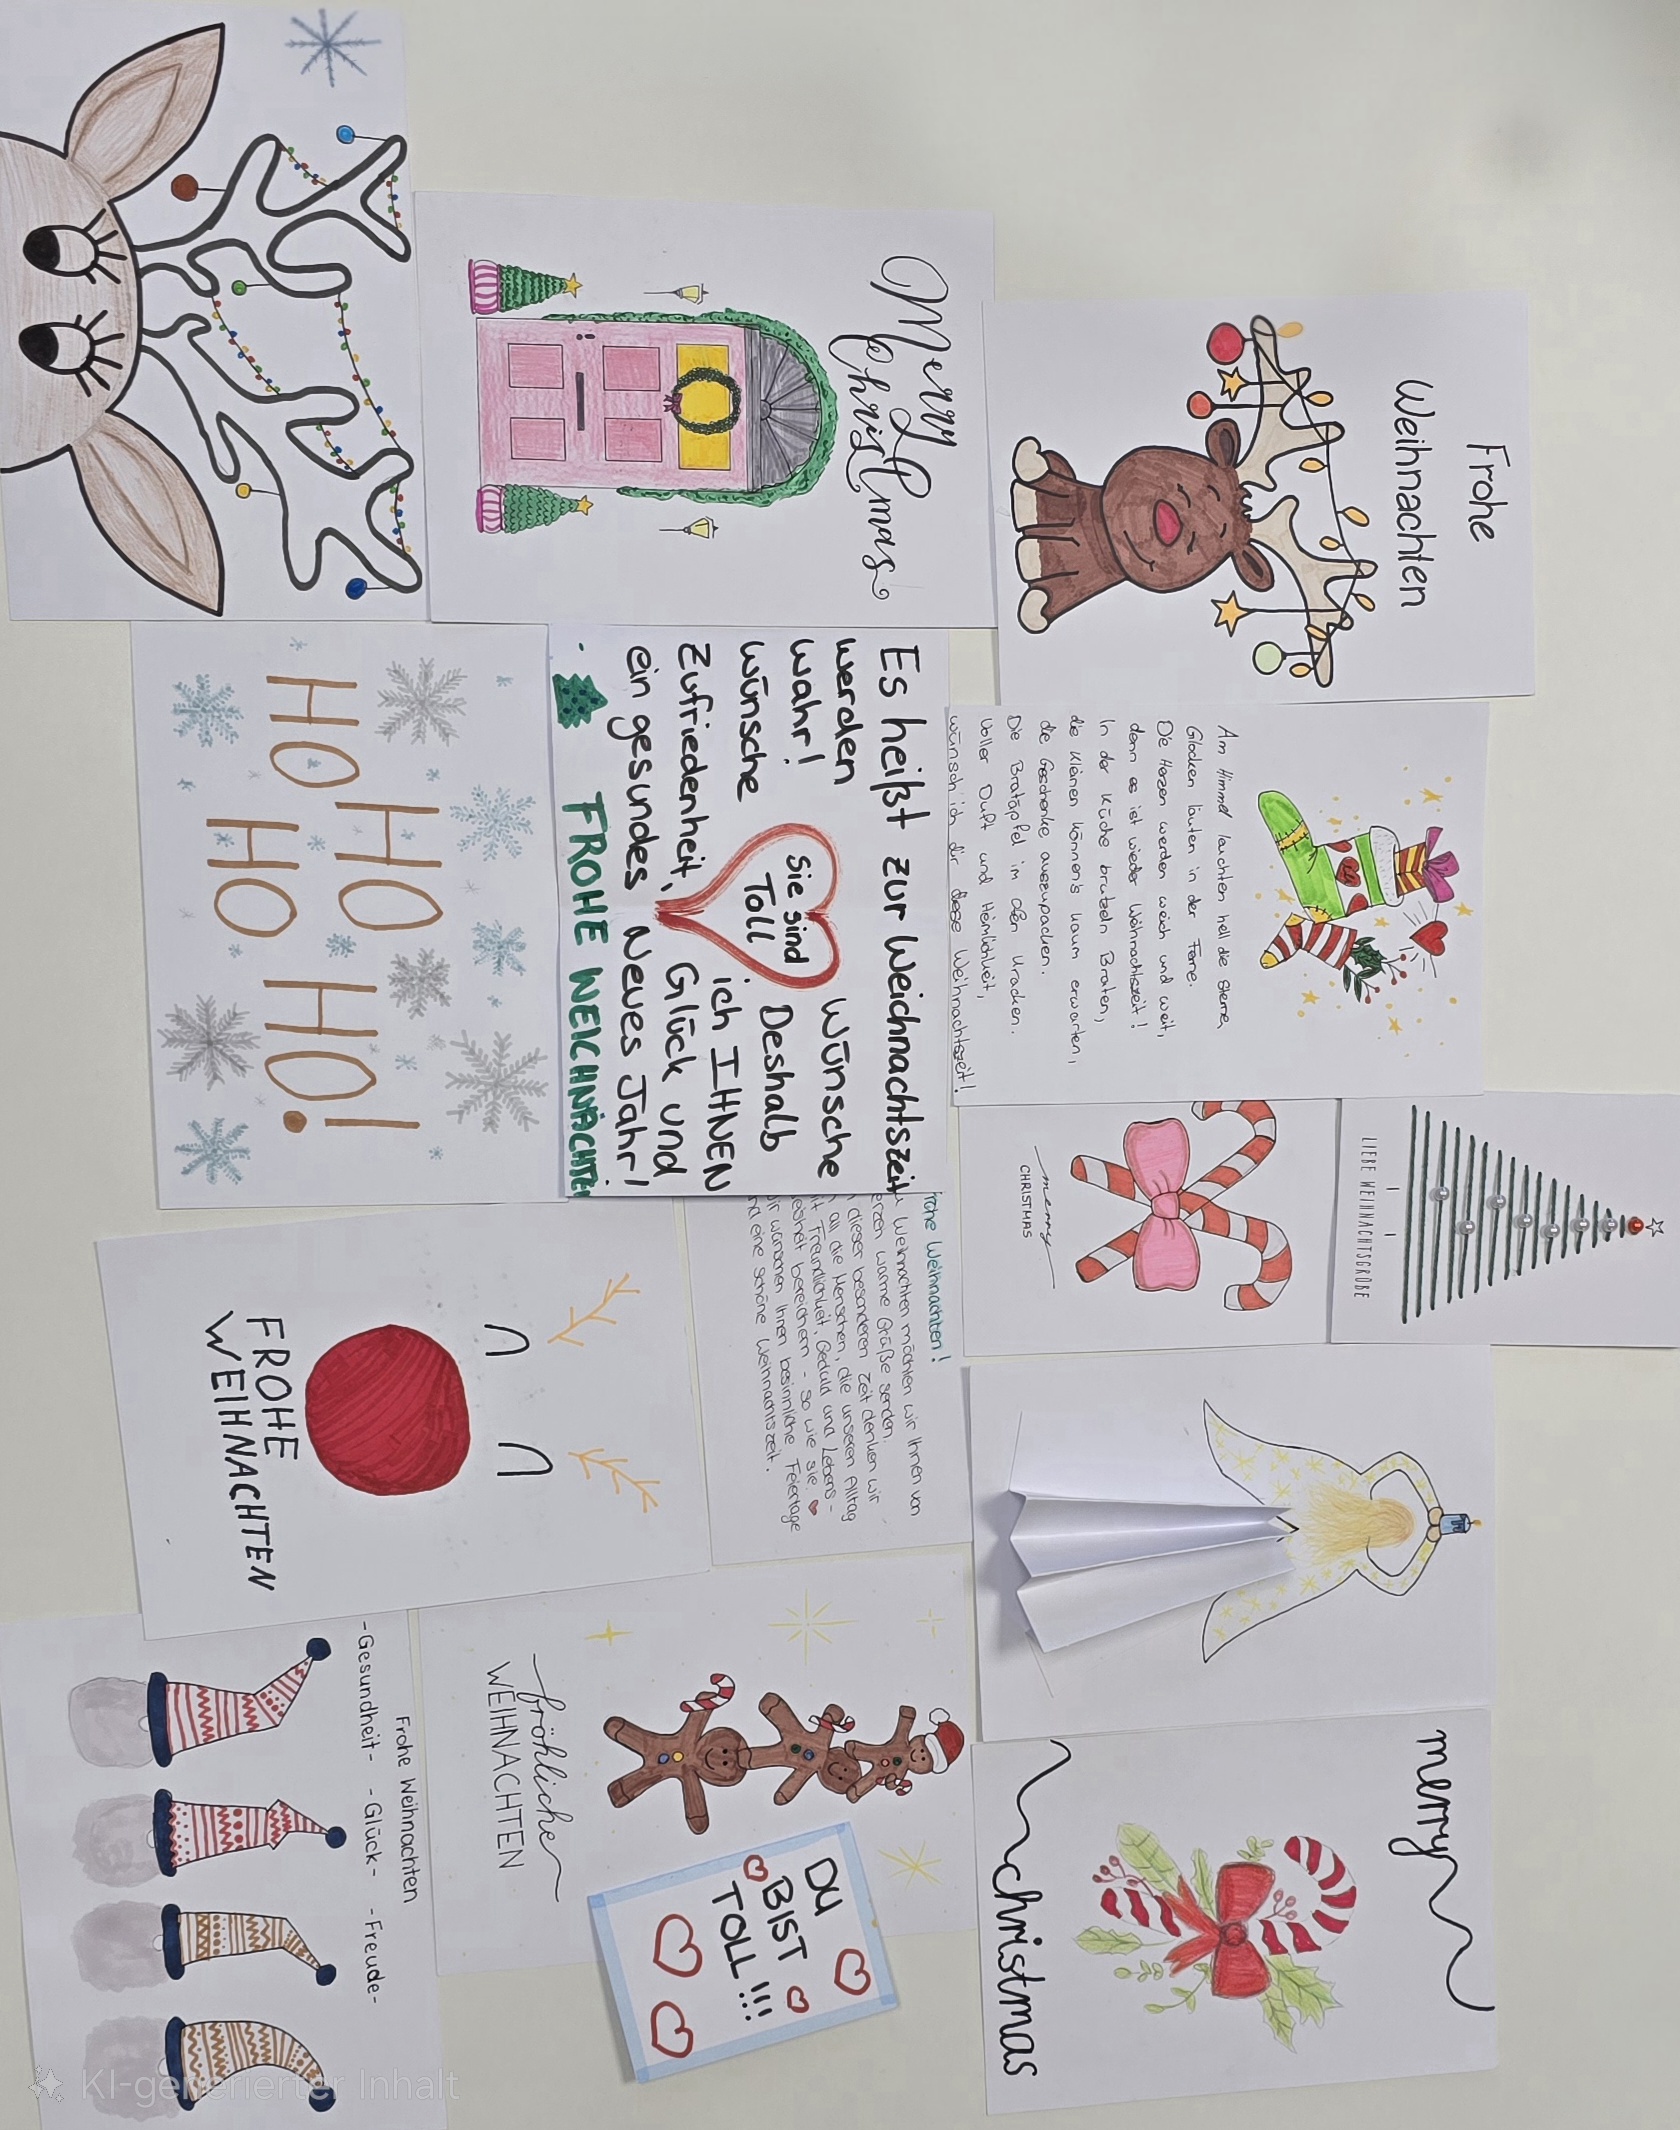 Frohe
Weihnachten
Merry
Christmas
Am Himmel leuchten hell die Sterne,
Glocken läuten in der Ferne.
Die Herzen werden weich und weit,
denn es ist wieder Weihnachtszeit!
In der Küche brutzeln Braten,
die Kleinen können's kaum erwarten,
die Geschenke auszupacken.
Die Bratäpfel im Ofen knacken.
Voller Duft und Heimlichkeit,
wünsch ich dir diese Weihnachtszeit!
Es heißt zur Weichnachtszeit
werden Wünsche
wahr! Deshalb
wünsche ich IHNEN
Zufriedenheit, Glück und
ein gesundes Neues Jahr!
Sie sind
Toll
FROHE WEICHNACHTE
HO HO
HO HO!
LIEBE WEIHNACHTSGRÜßE
merry
CHRISTMAS
rohe Weihnachten!
Weihnachten möchten wir Ihnen von
erzen warme Grüße senden.
dieser besonderen Zeit denken wir
all die Menschen, die unseren Alltag
it Freundlichkeit, Geduld und Lebens-
eisheit bereichern - so wie sie.
ir wünschen Ihnen besinnliche Feiertage
nd eine schöne Weihnachtszeit.
FROHE
WEIHNACHTEN
merry
christmas
fröhliche
WEIHNACHTEN
DU
BIST
TOLL!!!
Frohe Weihnachten
-Gesundheit- -Glück- -Freude-
KI-generierter Inhalt